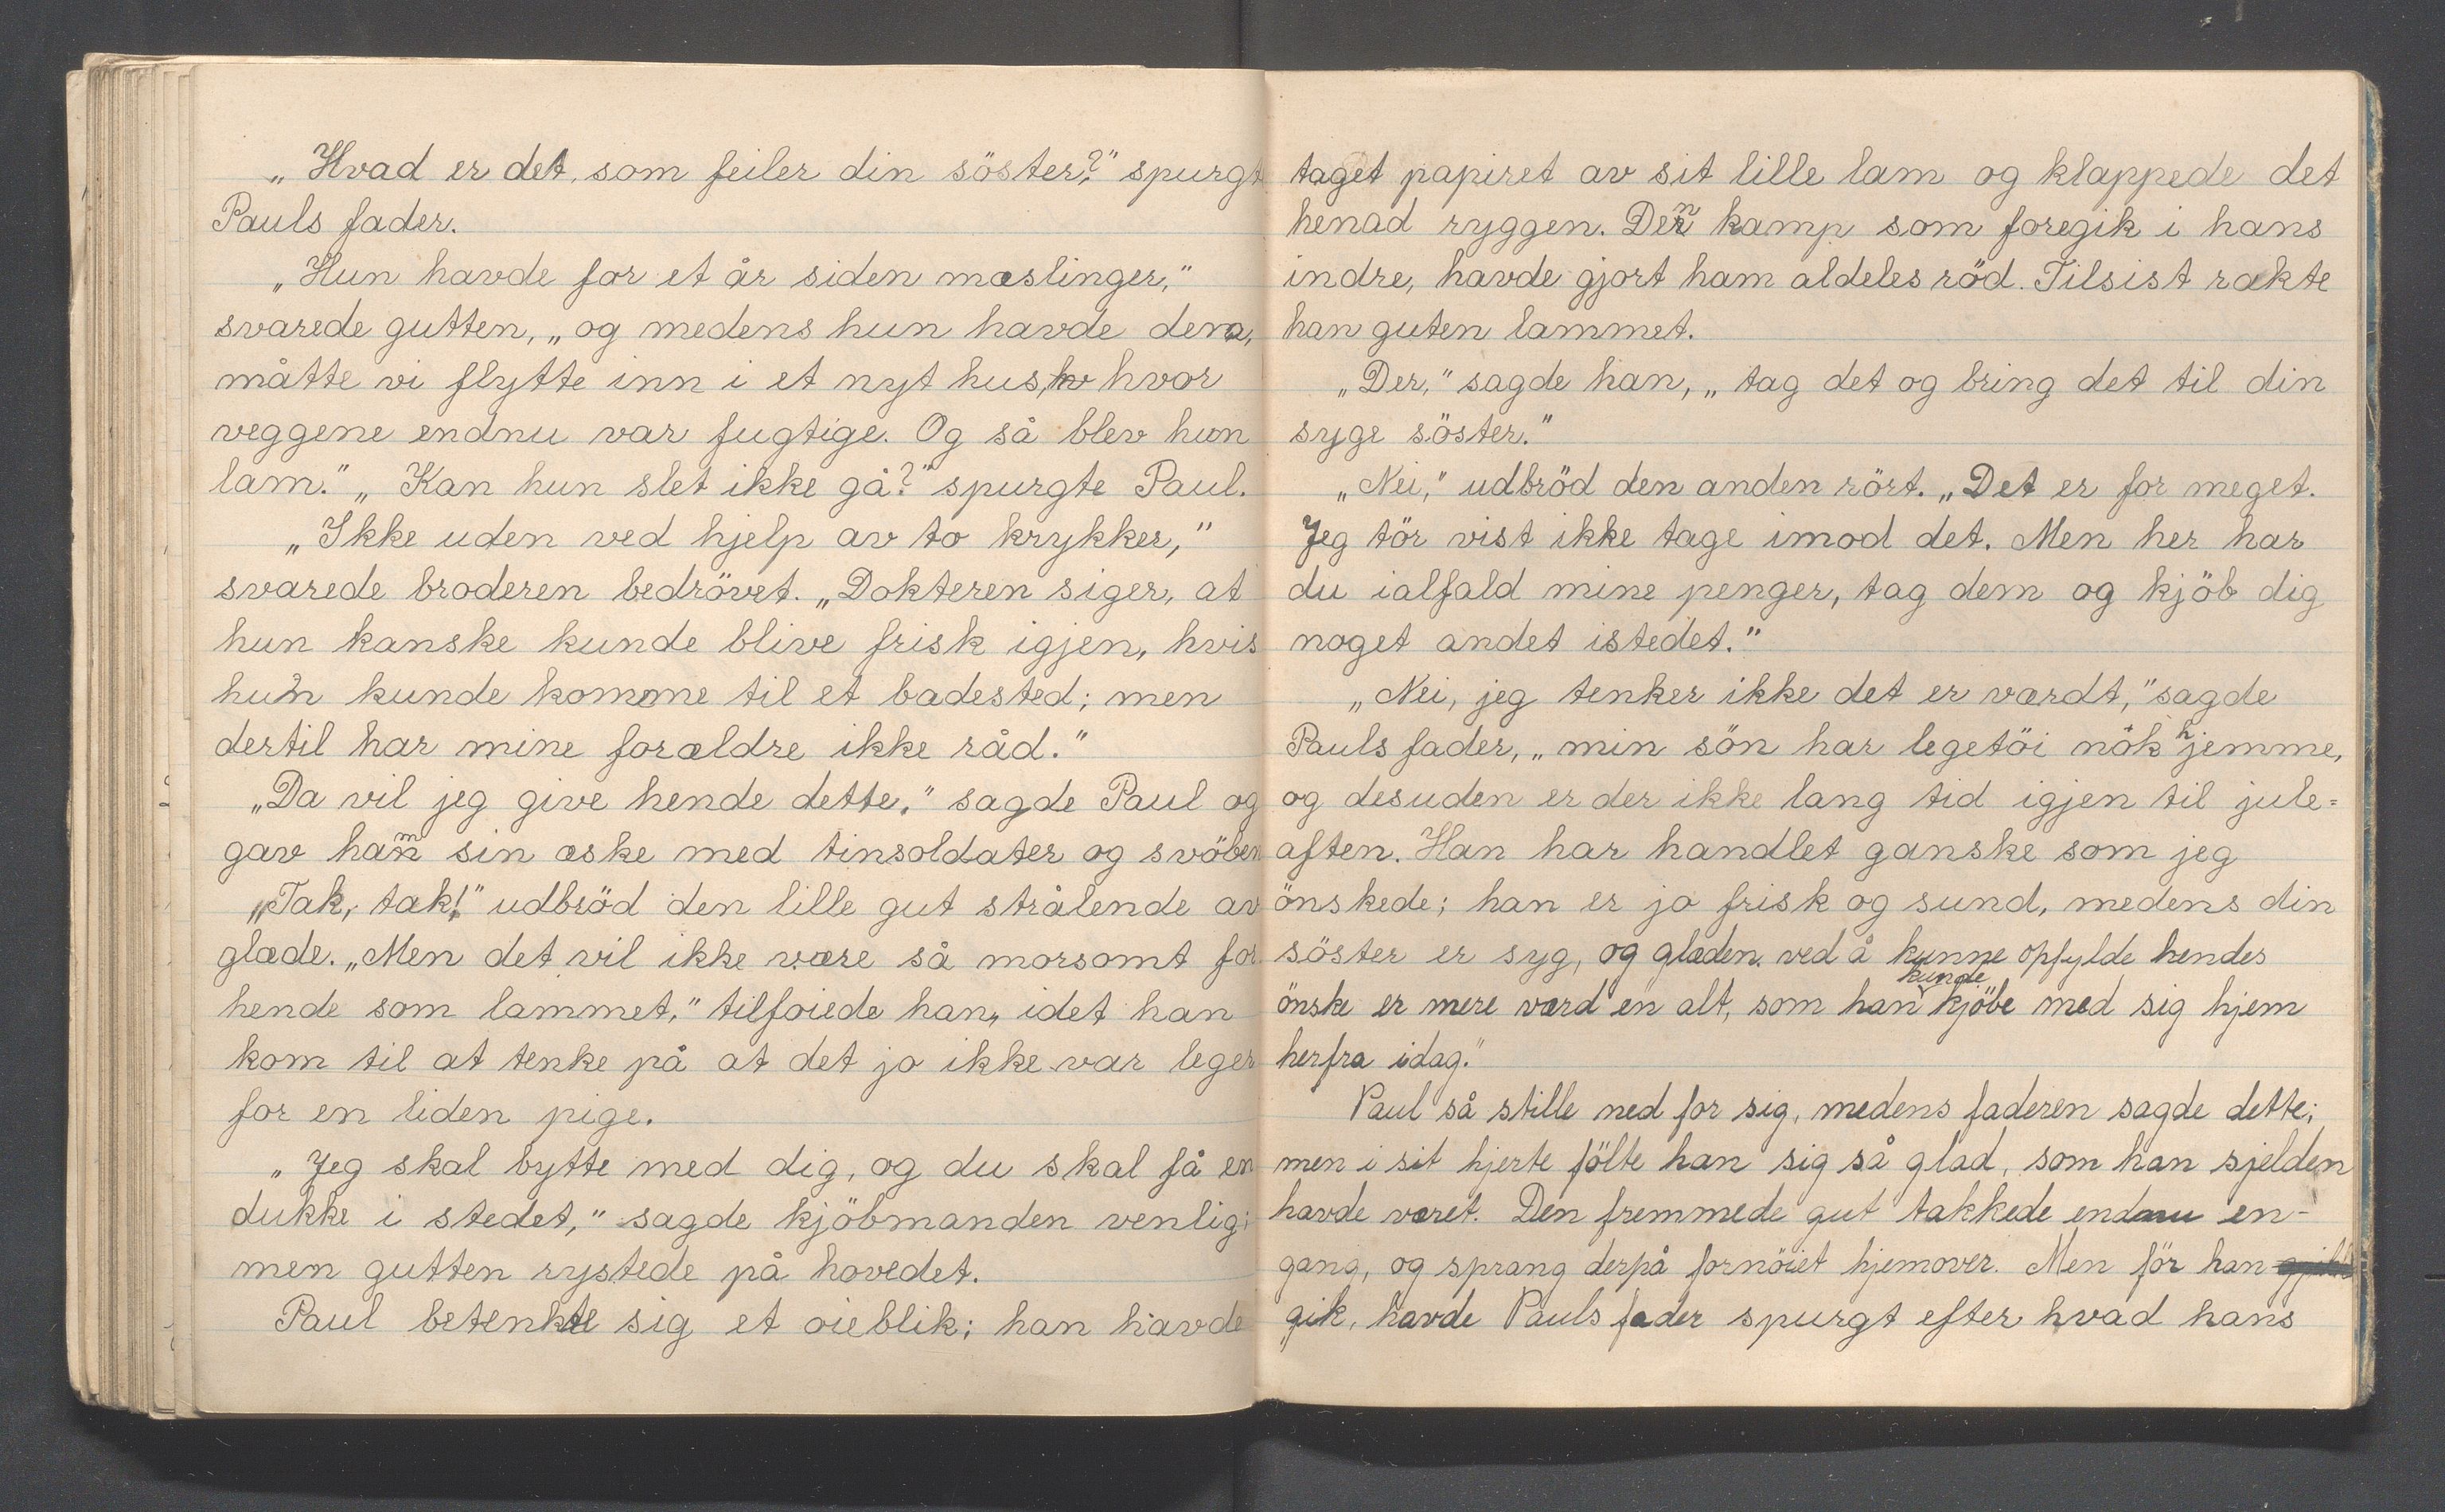 „Hvad er det, som feiler din söster?" spurgt
Pauls fader.
„Hun havde for et år siden mæslinger,"
svarede gutten, „og medens hun havde dem,
måtte vi flytte inn i et nyt hus, hvor
veggene endnu var fugtige. Og så blev hun
lam." „Kan hun slet ikke gå?" spurgte Paul.
„Ikke uden ved hjelp av to krykker,"
svarede broderen bedrövet. „Dokteren siger, at
hun kanske kunde blive frisk igjen, hvis
hun kunde komme til et badested; men
dertil har mine forældre ikke råd."
„Da vil jeg give hende dette," sagde Paul og
gav ham sin æske med tinsoldater og svöben
„Tak, tak!" udbröd den lille gut strålende av
glæde. „Men det vil ikke være så morsomt for
hende som lammet," tilfoiede han, idet han
kom til at tenke på at det jo ikke var leger
for en liden pige.
„Jeg skal bytte med dig, og du skal få en
dukke i stedet," sagde kjöbmanden venlig;
men gutten rystede på hovedet.
Paul betenkte sig et oieblik; han havde
taget papiret av sit lille lam og klappede det
henad ryggen. Den kamp som foregik i hans
indre, havde gjort ham aldeles röd. Tilsist rækte
han guten lammet.
„Der," sagde han, „tag det og bring det til din
syge söster."
„Nei," udbröd den anden rört. „Det er for meget.
Jeg tör vist ikke tage imod det. Men her har
du ialfald mine penger, tag dem og kjöb dig
noget andet istedet."
„Nei, jeg tenker ikke det er værdt," sagde
Pauls fader, „min sön har legetöi nok hjemme,
og desuden er der ikke lang tid igjen til jule=
aften. Han har handlet ganske som jeg
önskede; han er jo frisk og sund, medens din
söster er syg, og glæden ved å kunne opfylde hendes
önske er mere værd en alt, som han kunde kjöbe med sig hjem
herfra idag."
Paul så stille ned for sig, medens faderen sagde dette;
men i sit hjerte fölte han sig så glad, som han sjelden
havde været. Den fremmede gut takkede endnu en-
gang, og sprang derpå fornöiet hjemover. Men för han
gik, havde Pauls fader spurgt efter hvad hans